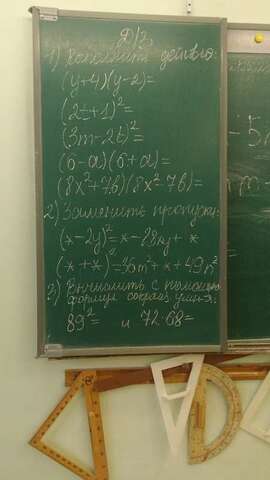 Д/З.
1) Выполнить действия:
(y+4)(y-2)=
(2t+1)²=
(3m-2t)²=
(6-a)(6+a)=
(8x²+7b)(8x²-7b)=
2) Заменить пропуски:
(*-2y)²=*-28xy+*
(*+*)²=36m²+*+49n²
3) Вычислить с помощью
формул сокращ. умн-я:
89²= и 72·68=
-5
m-